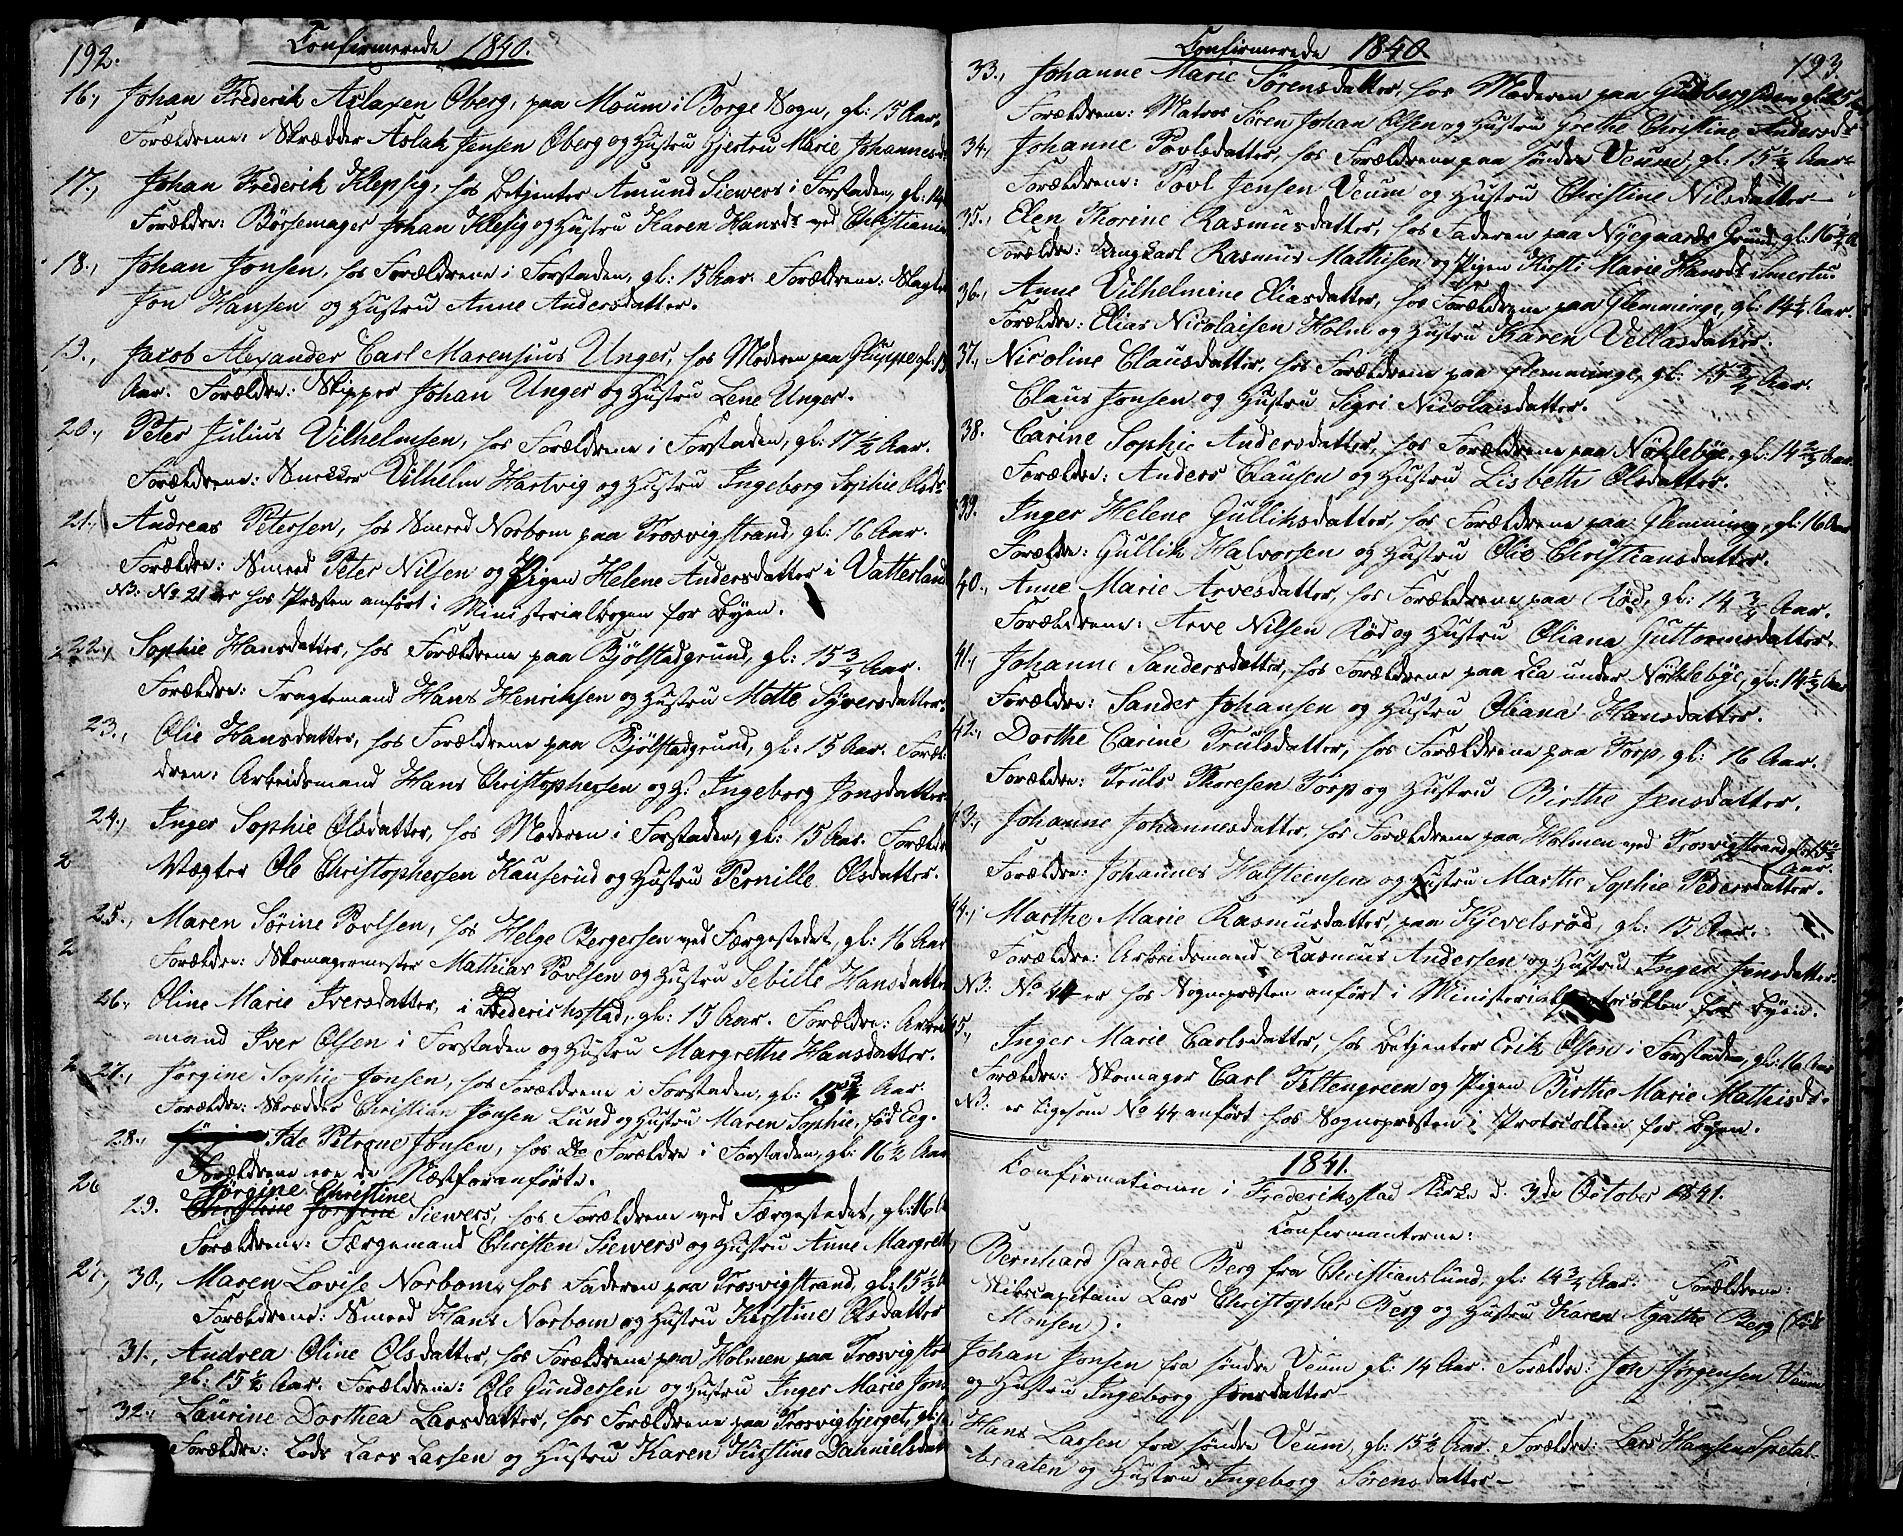 192.
Confirmerede 1840.
16., Johan Frederik Aslaksen Øberg, paa Moum i Borge Sogn, gl: 15 Aar,
Forældrene: Skrædder Aslak Jensen Øberg og Hustru Gjertru Marie Johannesd
17., Johan Frederik Klepsig, hos Betjenter Amund Siewers i Forstaden, gl: 14
Forældre: Børsemager Johan Klepsig og Hustru Karen Hansd: ved Christiania
18., Johan Jonsen, hos Forældrene i Forstaden, gl: 15 Aar. Forældrene: Slagter
Jon Hansen og Hustru Anne Andersdatter.
19., Jacob Alexander Carl Marensius Unger, hos Moderen paa Gluppe, gl: 15
Aar. Forældre: Skipper Johan Unger og Hustru Lene Unger.
20., Peter Julius Vilhelmsen, hos Forældrene i Forstaden, gl: 17 1/2 Aar.
Forældrene: Snekker Vilhelm Hartvig og Hustru Ingeborg Sophie Olsd:
21., Andreas Petersen, hos Smed Norbom paa Trosvigstrand, gl: 16 Aar.
Forældre: Smed Peter Nilsen og Pigen Helene Andersdatter i Vatterland
NB: No 21 er hos Præsten anført i Ministerialbogen for Byen.
22., Sophie Hansdatter, hos Forældrene paa Bjølstadgrund, gl: 15 3/4 Aar.
Forældre: Fragtemand Hans Henriksen og Hustru Mette Syversdatter.
23., Olie Hansdatter, hos Forældrene paa Bjølstadgrund, gl: 15 Aar. Foræl-
dren: Arbeidsmand Hans Christophersen og H: Ingeborg Jonsdatter
24., Inger Sophie Olsdatter, hos Moderen i Forstaden, gl: 15 Aar. Forældre
Vægter Ole Christophersen Kauserud og Hustru Pernille Olsdatter.
25., Maren Sørine Povlsen, hos Helge Bergersen ved Færgestedet, gl: 16 Aar
Forældre: Skomagermester Mathias Povlsen og Hustru Sebille Hansdatter
26., Oline Marie Iversdatter, i Frederichstad, gl: 15 Aar. Forældre: Arbei
mand Iver Olsen i Forstaden og Hustru Margrethe Hansdatter.
27., Jørgine Sophie Jonsen, hos Forældrene i Forstaden, gl: 15 3/4 Aar.
Forældre: Skrædder Christian Jonsen Lund og Hustru Maren Sophie, fød Eg.
28., Ide Petrone Jonsen, hos Do Forældre i Forstaden, gl: 16 1/2 Aar
Forældrene ere de Næstforanførte.
Jørgine Christine
29. Siewers, hos Forældrene ved Færgestedet, gl:
Forældrene: Færgemand Christen Siewers og Hustru Anne Margreth
30., Maren Lovise Norbom, hos Faderen paa Trosvigstrand, gl: 15 1/2
Forældrene: Smed Hans Norbom og Hustru Kirstine Olsdatter
31., Andrea Oline Olsdatter, hos Forældrene paa Holmen paa Trosvigstr
gl: 15 1/2 Aar. Forældrene: Ole Gundersen og Hustru Inger Marie Jons
32., Laurine Dorthea Larsdatter, hos Forældrene paa Trosvigbjerget, gl:
Forældre: Lods Lars Larsen og Hustru Karen Kirstine Danielsdat
193.
Confirmerede 1840
33., Johanne Marie Sørensdatter, hos Moderen paa Gudbergsten gl: 15 Aar
Forældrene: Matros Søren Johan Olsen og Hustru Grethe Christine Andersd:
34., Johanne Povlsdatter, hos Forældrene paa søndre Veum, gl: 15 1/4 Aar
Forældrene: Povl Jensen Veum og Hustru Christine Nilsdatter
35., Elen Thorine Rasmusdatter, hos Faderen paa Nyegaards Grund, gl: 16 3/4 A
Forældre: Ungkarl Rasmus Mathisen og Pigen Kirsti Marie Hansd:
36., Anne Vilhelmine Eliasdatter, hos Forældrene paa Glemminge, gl: 14 1/2 Aar.
Forældre: Elias Nicolaisen Holm og Hustru Karen Vellasdatter.
37., Nicoline Clausdatter, hos Forældrene paa Glemminge, gl: 15 3/4 Aar.
Claus Jonsen og Hustru Sigri Nicolaisdatter.
38. Carine Sophie Andersdatter, hos Forældrene paa Nøklebye, gl: 14 2/3 Aar.
Forældre: Anders Clausen og Hustru Lisbeth Olsdatter.
39. Inger Helene Gulliksdatter, hos Forældrene paa Glemming, gl: 16 Aar
Forældre: Gullik Halvorsen og Hustru Olie Christiansdatter.
40., Anne Marie Arvesdatter, hos Forældrene paa Rød, gl: 14 3/4 Aar.
Forældrene: Arve Nilsen Rød og Hustru Oliana Guttormsdatter.
41., Johanne Sandersdatter, hos Forældrene paa Lia under Nøklebye, gl: 14 2/3 Aar
Forældre: Sander Johansen og Hustru Oliana Hansdatter.
42., Dorthe Carine Trulsdatter, hos Forældrene paa Torp, gl: 16 Aar.
Forældre: Truls Thoresen Torp og Hustru Birthe Jensdatter.
43., Johanne Johannesdatter, hos Forældrene paa Holmen ved Trosvigstrand gl: 15 2/3
Aar.
Forældre: Johannes Halsteensen og Hustru Marthe Sophie Pedersdatter.
44., Marthe Marie Rasmusdatter, paa Kjevelsrød, gl: 15 Aar.
Forældre: Arbeidsmand Rasmus Andersen og Hustru Inger Jensdatter.
NB: No 44 er hos Sognepræsten anført i Ministerialprotocollen for Byen.
45., Inger Marie Carlsdatter, hos Betjenter Erik Olsen i Forstaden, gl: 16 Aar
Forældre: Skomager Carl Tettengreen og Pigen Birthe Marie Mathisd:
NB: er ligesom No 44 anført hos Sognepræsten i Protocollen for Byen.
1841.
Confirmationen i Frederikstad Kirke d. 3die October 1841.
Confirmanterne:
Bernhard Gaarde Berg fra Christianslund, gl: 14 3/4 Aar. Forældrene:
Skibscapitain Lars Christopher Berg og Hustru Karen Agathe Berg (født
Monsen).
Johan Jonsen fra søndre Veum gl: 14 Aar. Forældre: Jon Jørgensen Veum
og Hustru Ingeborg Jonsdatter
Hans Larsen fra søndre Veum, gl: 15 1/2 Aar. Forældre: Lars Hansen Spetal-
braaten og Hustru Ingeborg Sørensdatter